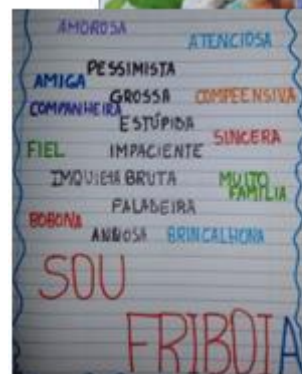 AMOROSA
ATENCIOSA
PESSIMISTA
AMIGA
GROSSA COMPEENSIVA
COMPANHEIRA
ESTÚPIDA
SINCERA
FIEL IMPACIENTE
INQUIETA BRUTA MUITO
FAMÍLIA
FALADEIRA
BOBONA
ANSIOSA BRINCALHONA
SOU
FRIBOIA